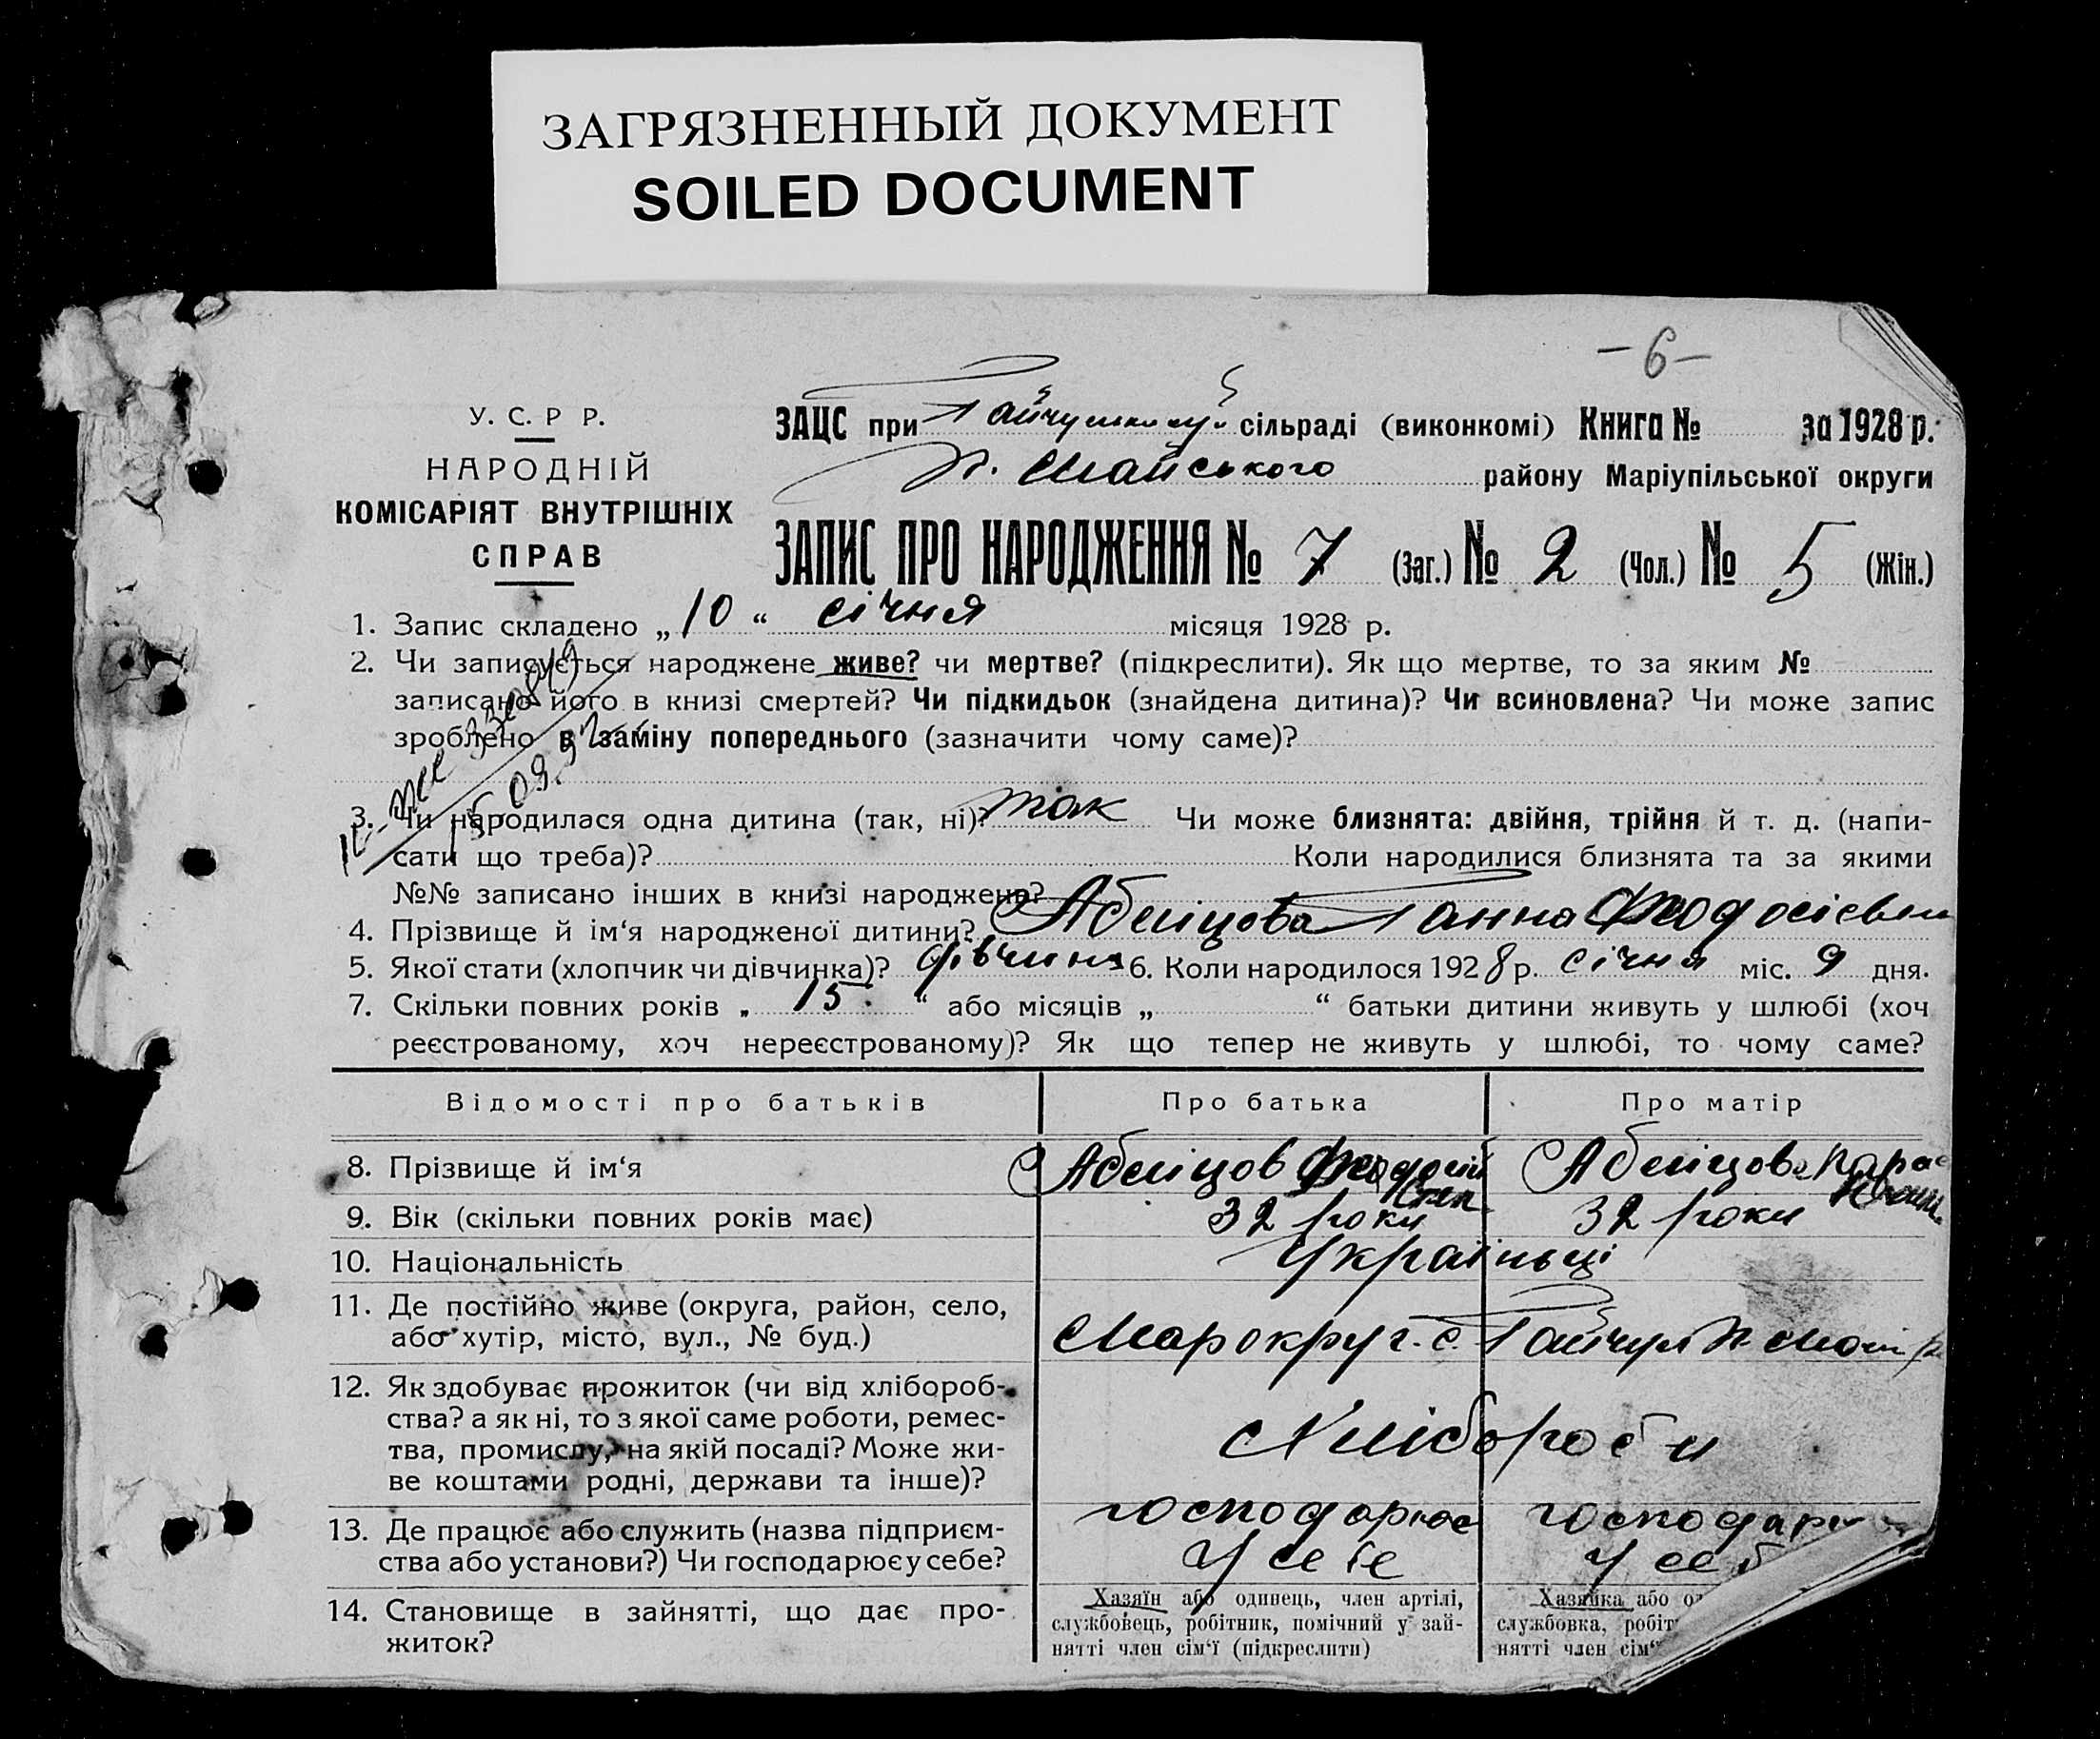 ЗАГРЯЗНЕННЫЙ ДОКУМЕНТ
SOILED DOCUMENT
– 6 –
У. С. Р Р.
НАРОДНІЙ
КОМІСАРІЯТ ВНУТРІШНІХ
СПРАВ
ЗАЦС при сільраді (виконкомі) Книга № за 1928 р.
району Маріупільської округи
ЗАПИС ПРО НАРОДЖЕННЯ № 7 (Заг.) № 2 (Чол.) № 5 (Жін.)
1. Запис складено „10“ січня місяця 1928 р.
2. Чи записується народжене живе? чи мертве? (підкреслити). Як що мертве, то за яким №
записано його в книзі смертей? Чи підкидьок (знайдена дитина)? Чи всиновлена? Чи може запис
зроблено в заміну попереднього (зазначити чому саме)?
3. Чи народилася одна дитина (так, ні)? так Чи може близнята: двійня, трійня й т. д. (напи-
сати що треба)? Коли народилися близнята та за якими
№№ записано інших в книзі народжень?
4. Прізвище й ім‘я народженої дитини? Ганна
5. Якої стати (хлопчик чи дівчинка)? дівчина 6. Коли народилося 1928 р. січня міс. 9 дня.
7. Скільки повних років „ 15 “ або місяців „ “ батьки дитини живуть у шлюбі (хоч
реєстрованому, хоч нереєстрованому)? Як що тепер не живуть у шлюбі, то чому саме?
Відомості про батьків Про батька Про матір
8. Прізвище й ім‘я
9. Вік (скільки повних років має) 32 роки 32 роки
10. Національність Україньці
11. Де постійно живе (округа, район, село,
або хутір, місто, вул., № буд.) Марокруг. с. Гайчул
12. Як здобуває прожиток (чи від хлібороб-
ства? а як ні, то з якої саме роботи, ремес-
тва, промислу, на якій посаді? Може жи-
ве коштами родні, держави та інше)? Хлібороби
13. Де працює або служить (назва підприєм-
ства або установи?) Чи господарює у себе? господарює у себе
14. Становище в зайнятті, що дає про-
житок?
Хазяїн або одинець, член артілі,
службовець, робітник, помічний у зай-
нятті член сім‘ї (підкреслити)
Хазяйка або
службовка, робіт
нятті член сім‘